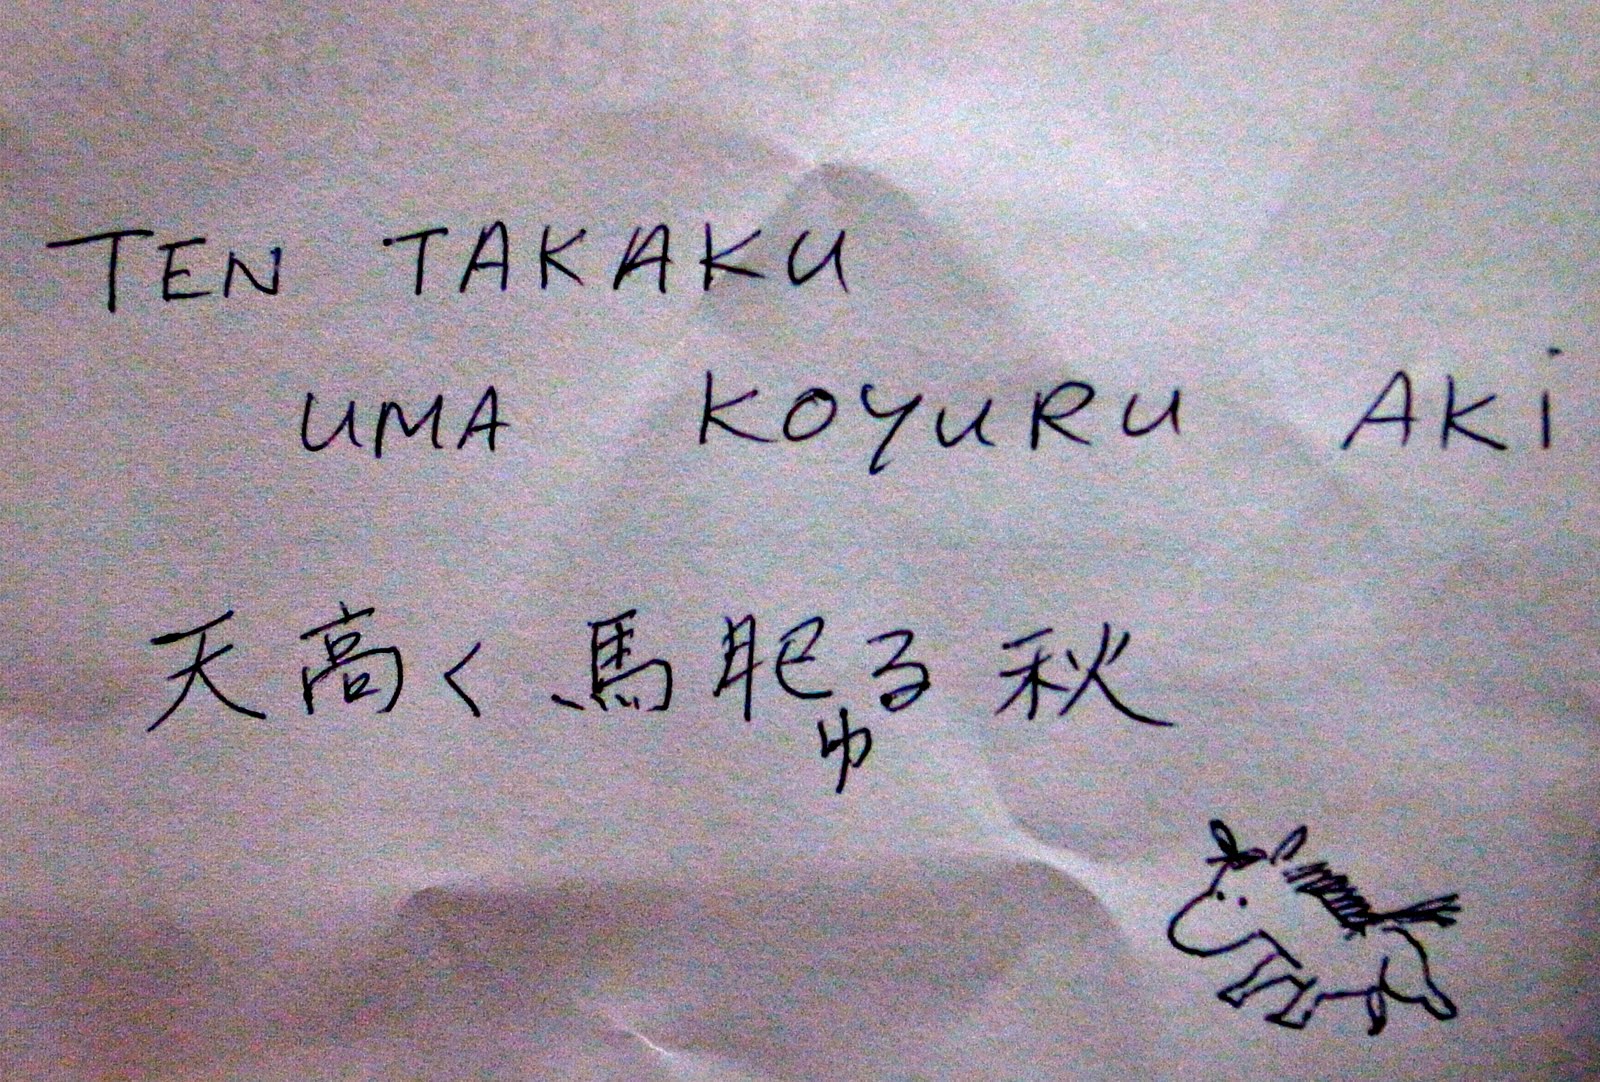 TEN TAKAKU
UMA KOYURU AKi
天高く馬肥る秋
ゆ